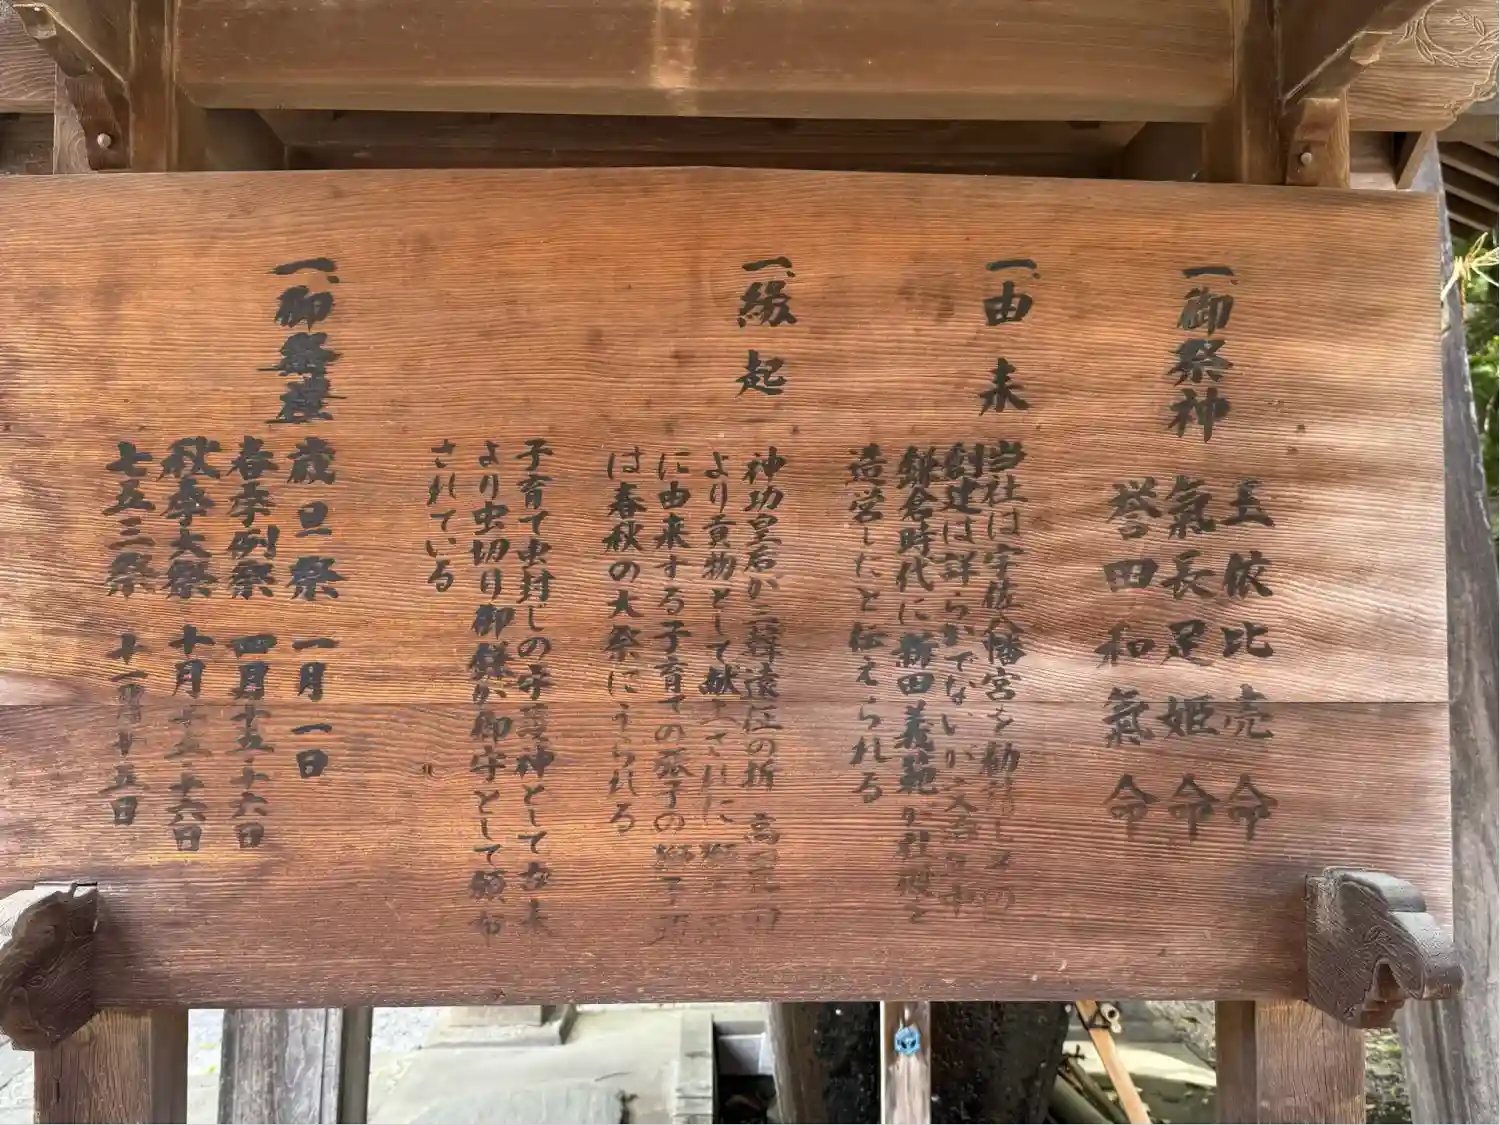 一、御祭神
玉依比売命
氣長足姫命
誉田和氣命
一、由来
当社は宇佐八幡宮を勧請しその
創建は詳らかでないが文治年中
鎌倉時代に新田義範が社殿を
造営したと伝えられる
一、縁起
神功皇后が三韓遠征の折 高麗の
より貢物として献上された
に由来する子育ての孤子の獅子頭
は春秋の大祭にうられる
子育て虫封じの守護神として古来
より虫切り御鎌が御守として頒布
されている
一、御祭禮
歳旦祭 一月一日
春季例祭 四月十五・十六日
秋季大祭 十月十五・十六日
七五三祭 十一月十五日